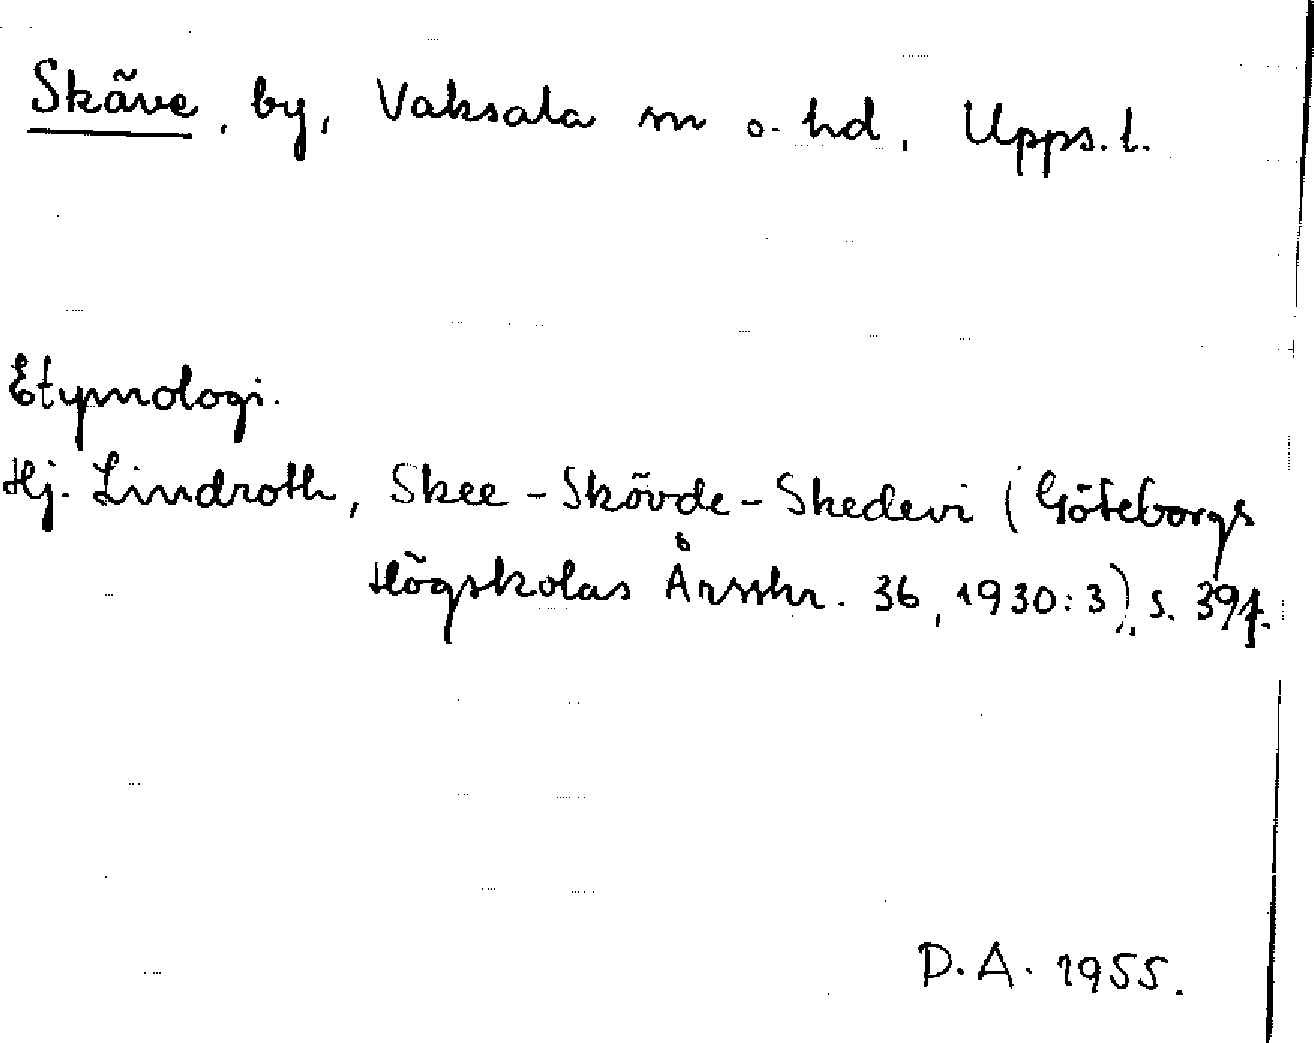 Skäve, by, Vaksala sn o. hd, Upps. l.
Etymologi.
Hj. Lindroth, Skee - Skövde - Skedevi (Göteborgs
Högskolas Årsskr. 36, 1930:3), s. 39f.
D.A. 1955.